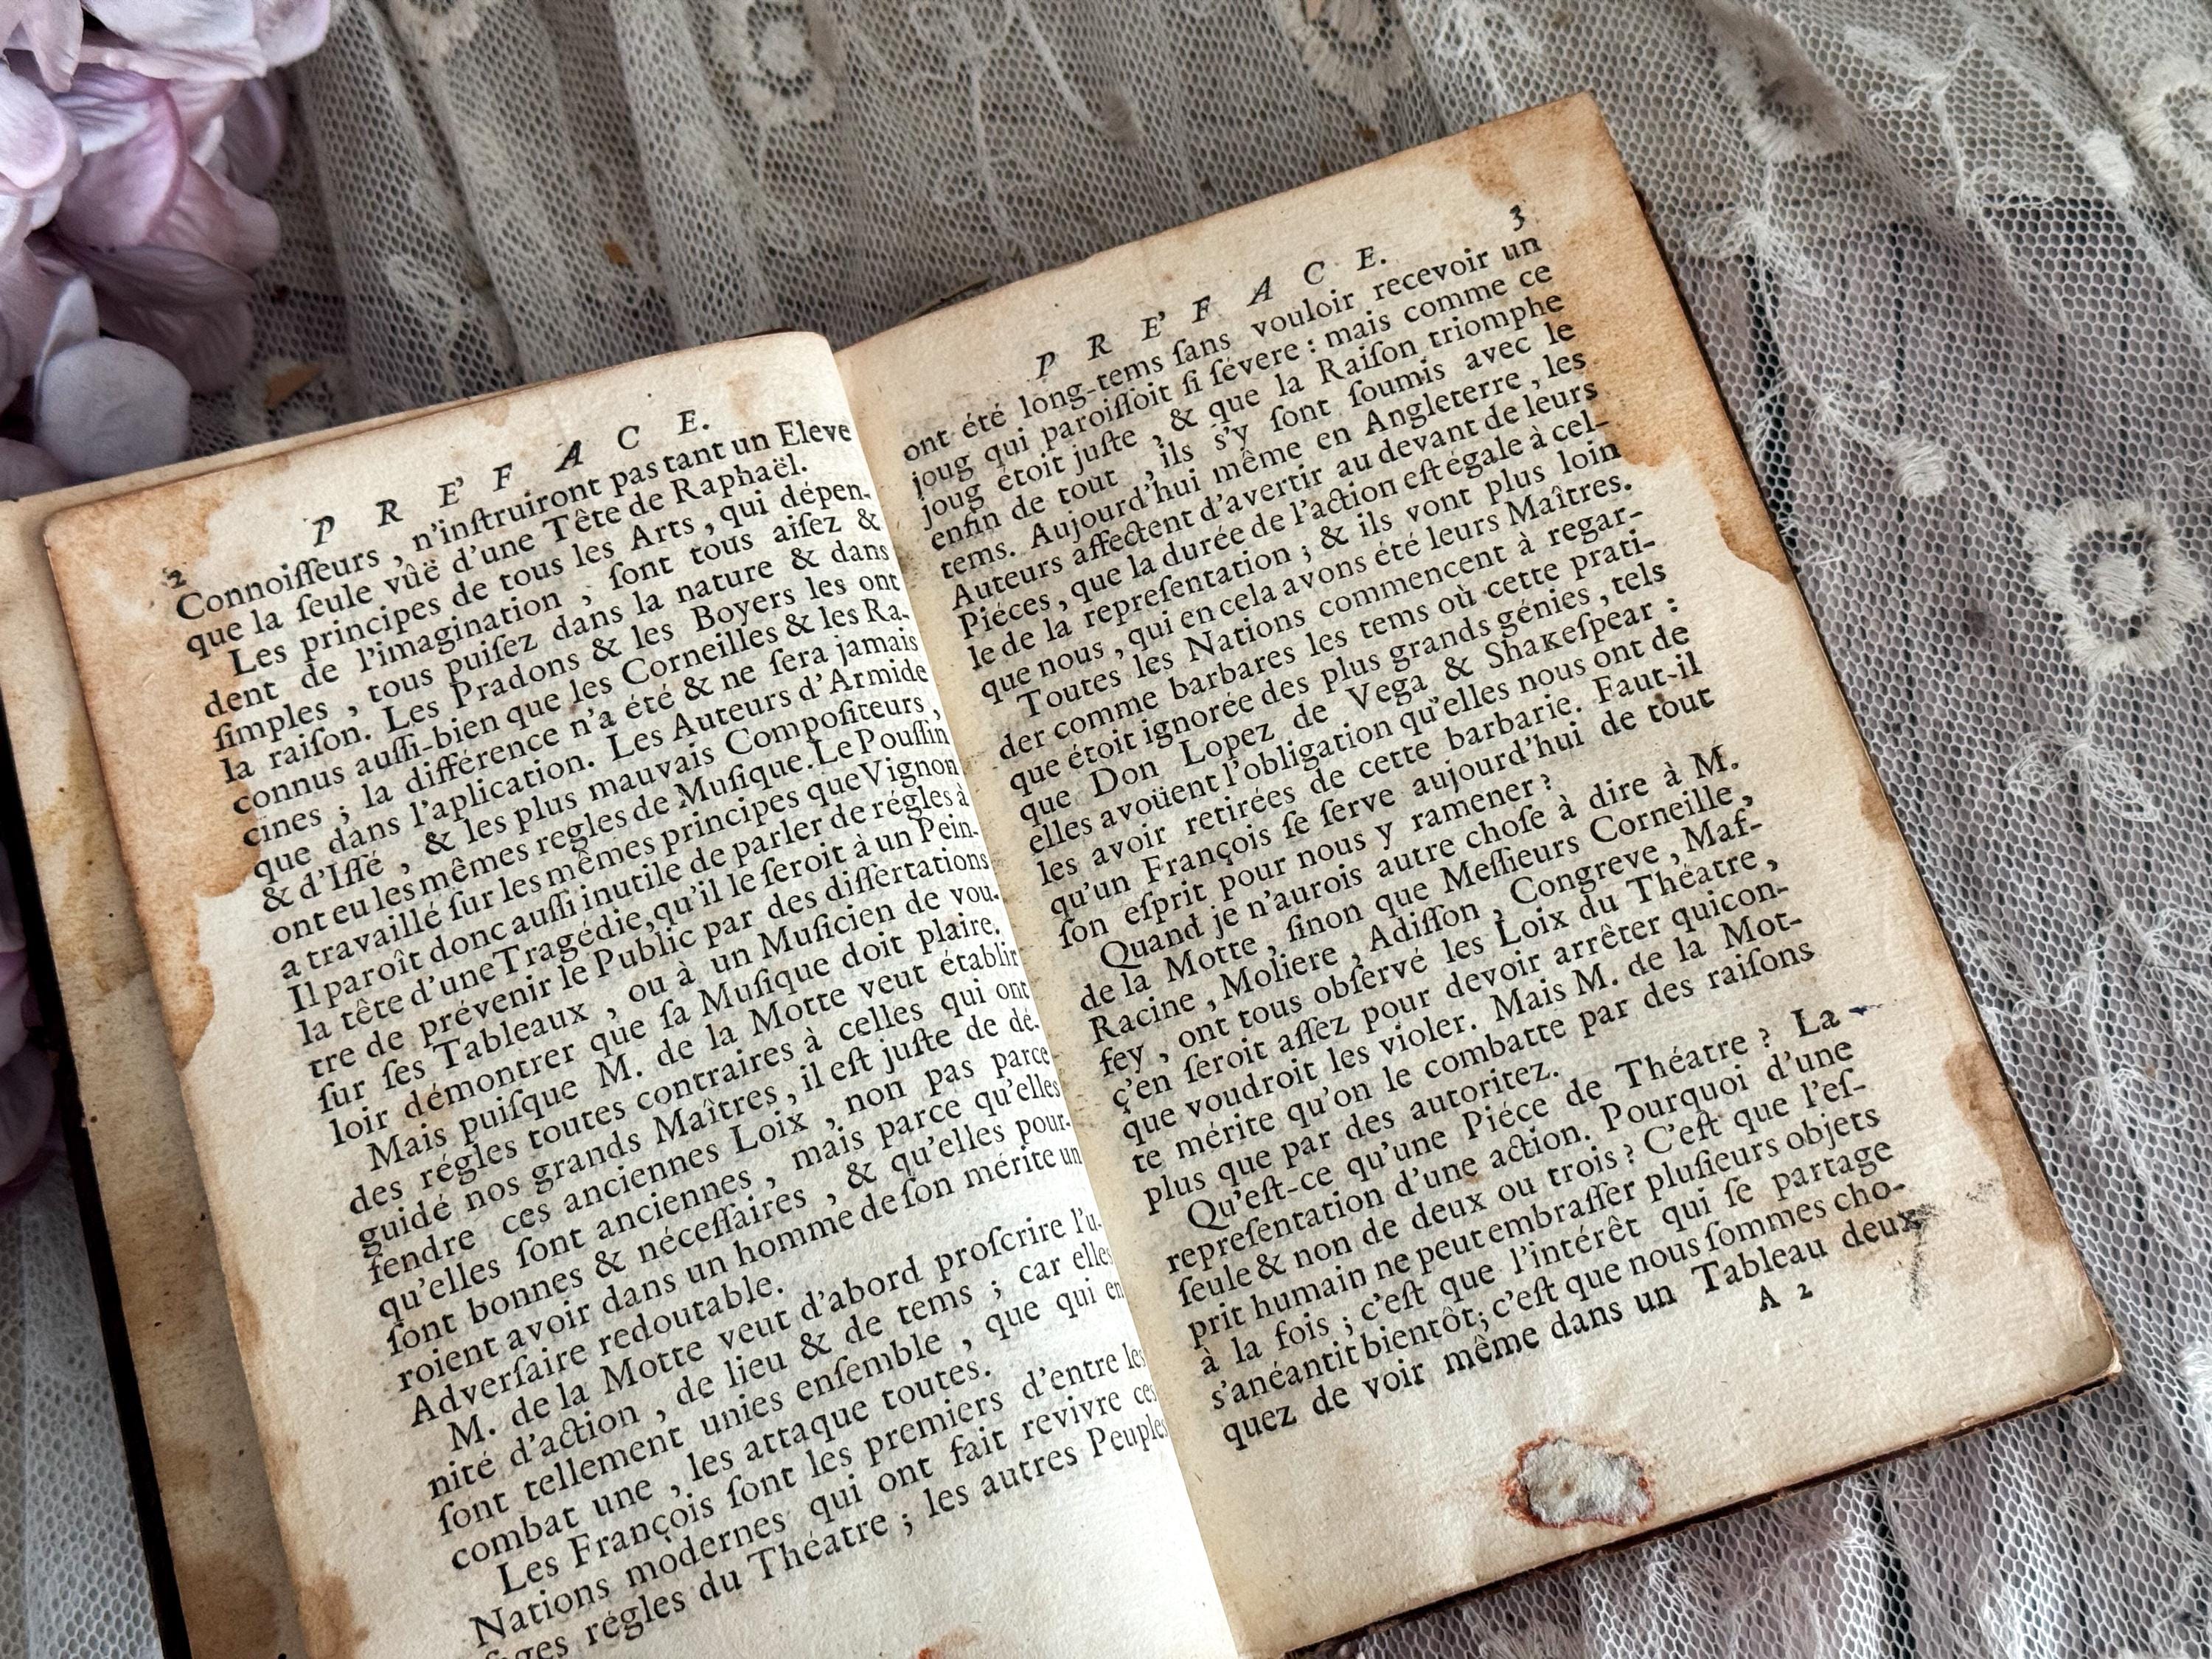 2
P R E' F A C E.
Connoiſſeurs , n'inſtruiront pas tant un Eleve
que la ſeule vûë d'une Tête de Raphaël.
Les principes de tous les Arts , qui dépen-
dent de l'imagination , ſont tous aiſez &
ſimples , tous puiſez dans la nature & dans
la raiſon. Les Pradons & les Boyers les ont
connus auſſi-bien que les Corneilles & les Ra-
cines ; la différence n'a été & ne ſera jamais
que dans l'aplication. Les Auteurs d'Armide
& d'Iſſé , & les plus mauvais Compoſiteurs ,
ont eu les mêmes regles de Muſique. Le Pouſſin
a travaillé ſur les mêmes principes que Vignon
Il paroît donc auſſi inutile de parler de régles à
la tête d'une Tragédie, qu'il le ſeroit à un Pein-
tre de prévenir le Public par des diſſertations
ſur ſes Tableaux , ou à un Muſicien de vou-
loir démontrer que ſa Muſique doit plaire.
Mais puiſque M. de la Motte veut établir
des régles toutes contraires à celles qui ont
guidé nos grands Maîtres , il eſt juſte de dé-
fendre ces anciennes Loix , non pas parce
qu'elles ſont anciennes , mais parce qu'elles
ſont bonnes & néceſſaires , & qu'elles pour-
roient avoir dans un homme de ſon mérite un
Adverſaire redoutable.
M. de la Motte veut d'abord proſcrire l'u-
nité d'action , de lieu & de tems ; car elles
ſont tellement unies enſemble , que qui en
combat une , les attaque toutes.
Les François ſont les premiers d'entre les
Nations modernes qui ont fait revivre ces
ſages régles du Théatre ; les autres Peuples
P R E' F A C E.
3
ont été long-tems ſans vouloir recevoir un
joug qui paroiſſoit ſi ſévere : mais comme ce
joug étoit juſte , & que la Raiſon triomphe
enfin de tout , ils s'y ſont ſoumis avec le
tems. Aujourd'hui même en Angleterre , les
Auteurs affectent d'avertir au devant de leurs
Piéces , que la durée de l'action eſt égale à cel-
le de la repreſentation ; & ils vont plus loin
que nous , qui en cela avons été leurs Maîtres.
Toutes les Nations commencent à regar-
der comme barbares les tems où cette prati-
que étoit ignorée des plus grands génies , tels
que Don Lopez de Vega & Shakeſpear :
elles avoüent l'obligation qu'elles nous ont de
les avoir retirées de cette barbarie. Faut-il
qu'un François ſe ſerve aujourd'hui de tout
ſon eſprit pour nous y ramener ?
Quand je n'aurois autre choſe à dire à M.
de la Motte , ſinon que Meſſieurs Corneille ,
Racine , Moliere , Adiſſon , Congreve , Maf-
fey , ont tous obſervé les Loix du Théatre ,
ç'en ſeroit aſſez pour devoir arrêter quicon-
que voudroit les violer. Mais M. de la Mot-
te mérite qu'on le combatte par des raiſons
plus que par des autoritez.
Qu'eſt-ce qu'une Piéce de Théatre ? La
repreſentation d'une action. Pourquoi d'une
ſeule & non de deux ou trois ? C'eſt que l'eſ-
prit humain ne peut embraſſer pluſieurs objets
à la fois ; c'eſt que l'intérêt qui ſe partage
s'anéantit bientôt ; c'eſt que nous ſommes cho-
quez de voir même dans un Tableau deux
A 2